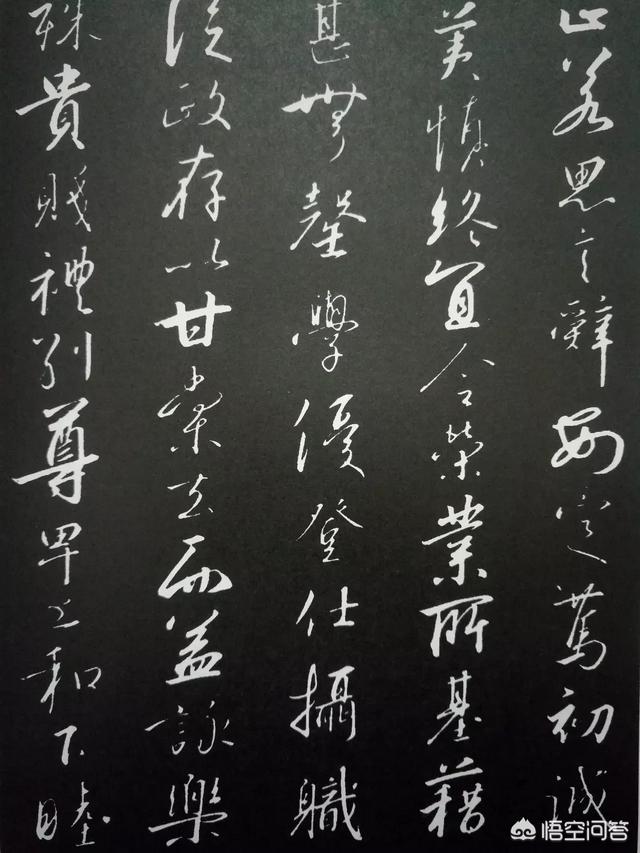 止若思言辭安定篤初誠
美慎終宜令榮業所基藉
甚無罄學優登仕攝職
從政存以甘棠去而益詠樂
殊貴賤禮別尊卑上和下睦
悟空问答